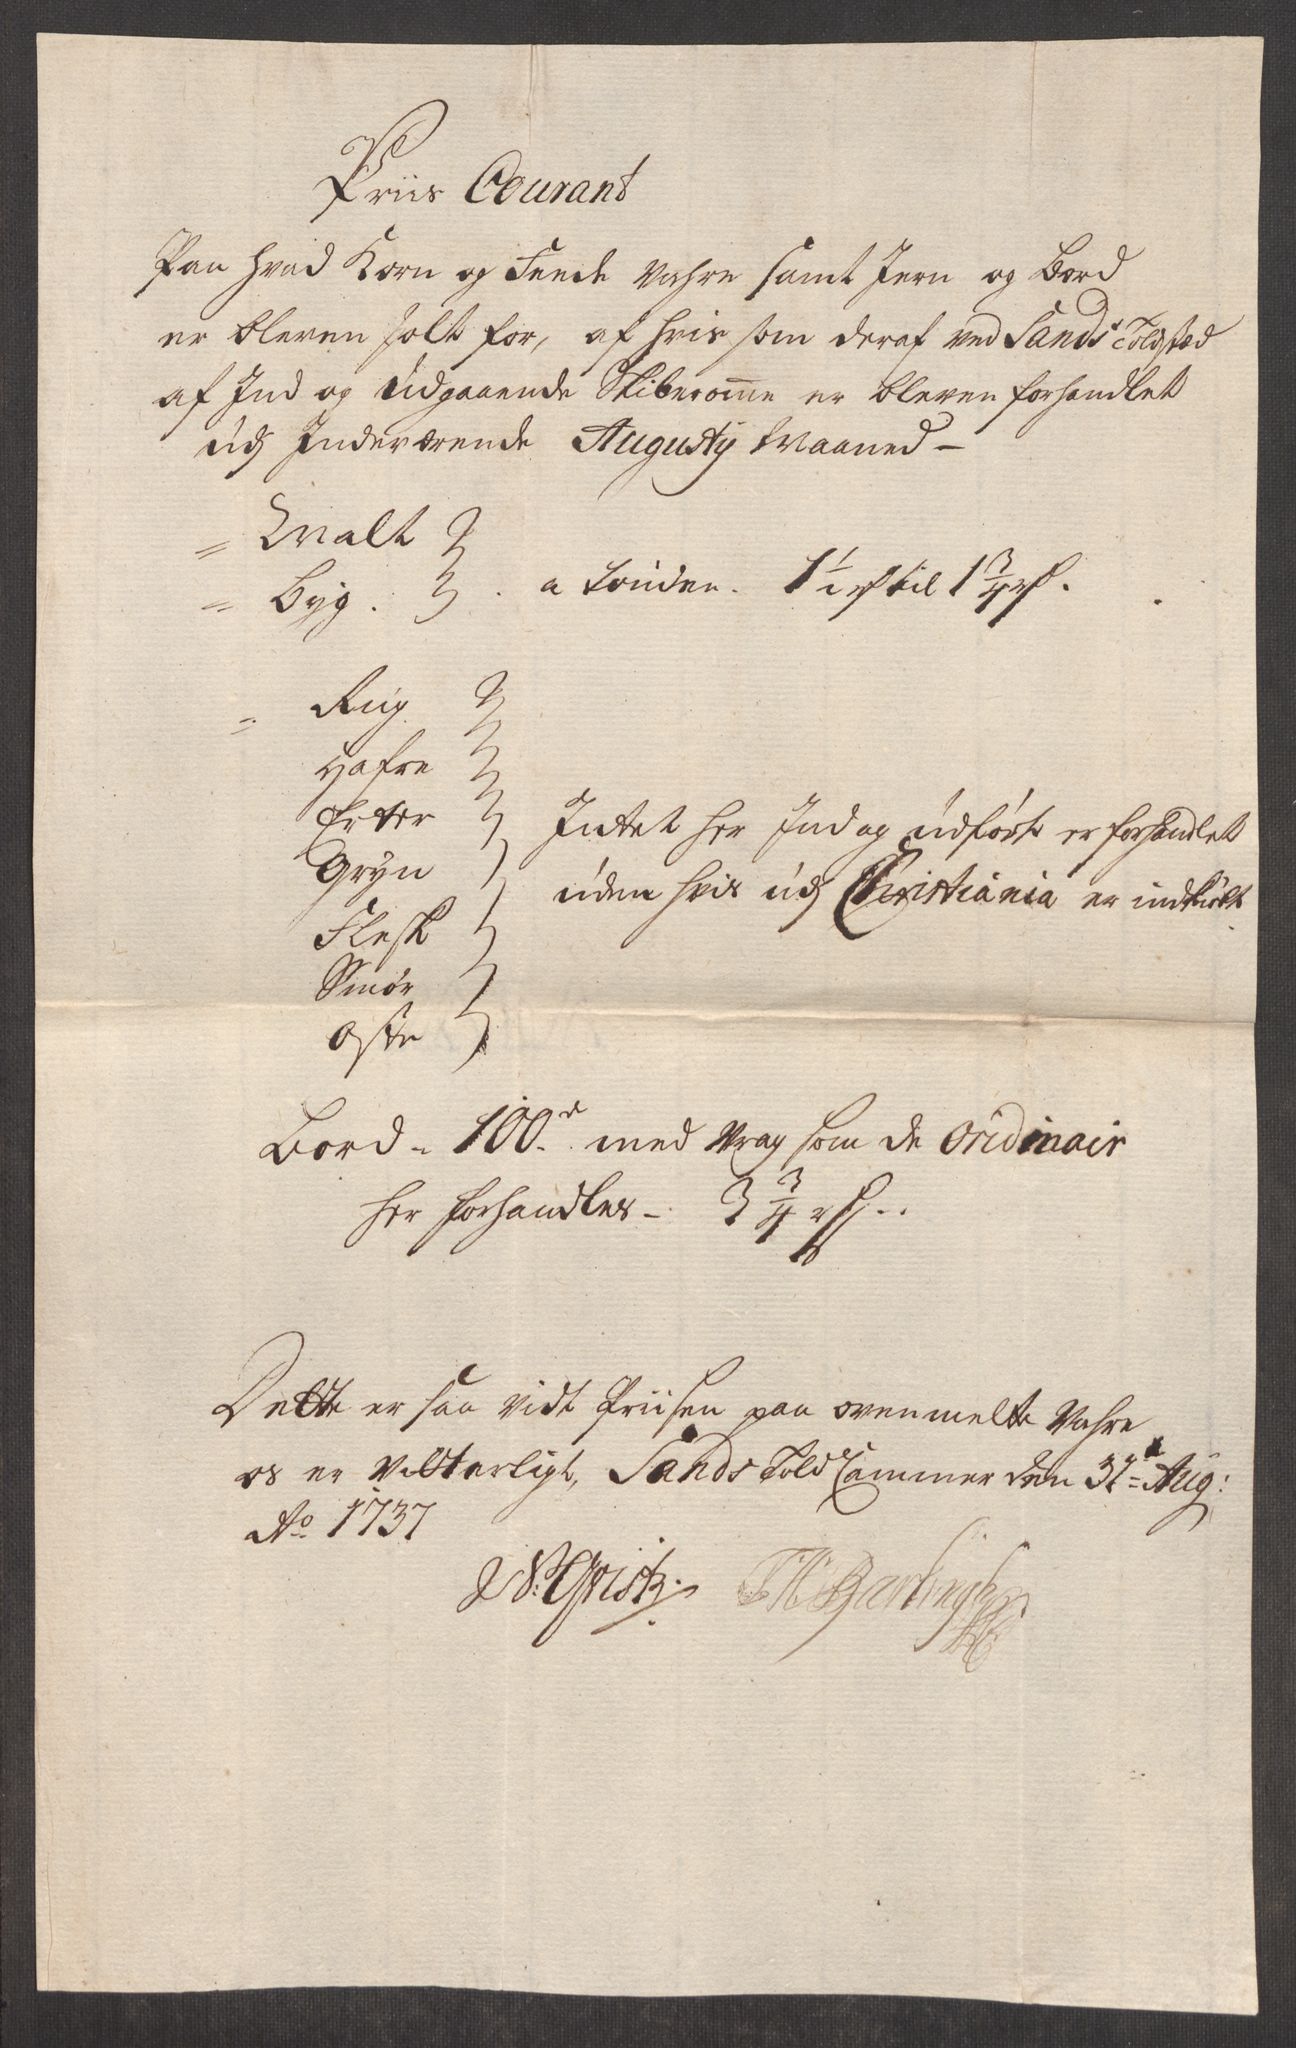 Priis Courant
Paa hvad Korn og Feede Vahre samt Jern og Bord
er bleven solt for, af hvis som deraf ved Sands Toldsted
af Ind og Udgaaende Skiberomme er bleven forhandlet
udj Indeværende Augusty Maaned -
= Malt
= Byg. a tønden. 1 1/2 rd til 1 3/4 rd.
= Rug
Hafre
Erter Intet her Ind og udført er forhandlet
Gryn uden hvis udj Christiania er indkiøbt
Flesk
Smør
Oste
Bord - 100de med Vrag som de Oridinair
her forhandles - 3 3/4 rd..
Dette er saa vidt Priisen paa ovenmelte Vahre
os er Vitterligt, Sands Told Cammer den 31te Aug:
Ao 1737